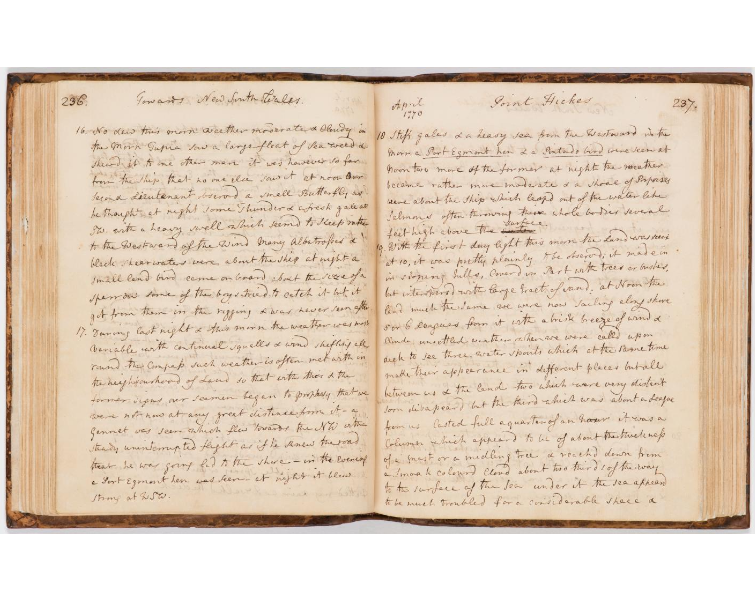 236.
Towards New South Wales.
16. No dew this morn weather moderate & Cloudy in
the Morn Tupia saw a large fleet of Sea weed &
shewd it to one other man it was however so far
from the ship that no one else saw it at noon Our
second Lieutenant observd a small Butterfly as
he thought at night some Thunder & a fresh gale at
with a heavy swell which seemd to keep rather
to the Westward of the Wind Many Albatrosses &
black shearwaters were about the ship at night a
Small land bird came on board about the size of a
sparrow some of the boys tried to catch it but it
got from them in the rigging & was never seen after
17. During last night & this morn the weather was most
Variable with continual squalls & wind shifting all
round the Compass such weather is often met with in
the neighbourhood of Land so that with this & the
former signs our seamen began to prophesy that we
were not now at any great distance from it - a
Gannet was seen which flew towards the NW with
steady uninterrupted flight as if he knew the road
that he was going led to the shore - in the Evening
a Port Egmont hen was seen at night it blew
strong at WSW.
April
1770
Point Hickes
237.
18 Stiff gales & a heavy sea from the Westward in the
morn a Port Egmont hen & a Pintado bird were seen at
Noon two more of the former at night the weather
became rather more moderate & a shoal of Porpoises
were about the ship which leapd out of the water like
Salmons often throwing their whole bodies several
feet high above the surface
19. With the first day light this morn the Land was seen
at 10, it was pretty plainly to be observd, it made in
in sloping hills, Coverd in Part with trees or bushes,
but interspersd with large tracts of sand, at Noon the
land much the same we were now sailing along shore
5 or 6 leagues from it with a brisk breeze of wind &
cloudy unsettled weather when we were calld upon
deck to see three water spouts which at the same time
made their appearance in different places but all
between us & the land two which were very distant
soon disapeard but the third which was about a League
from us lasted full a quarter of an hour it was a
Column which appeard to be of about the thickness
of a mast or a midling tree & reachd down from
a smoak colourd cloud about two thirds of the way
to the surface of the sea under it the sea appeard
to be much troubled for a considerable space &